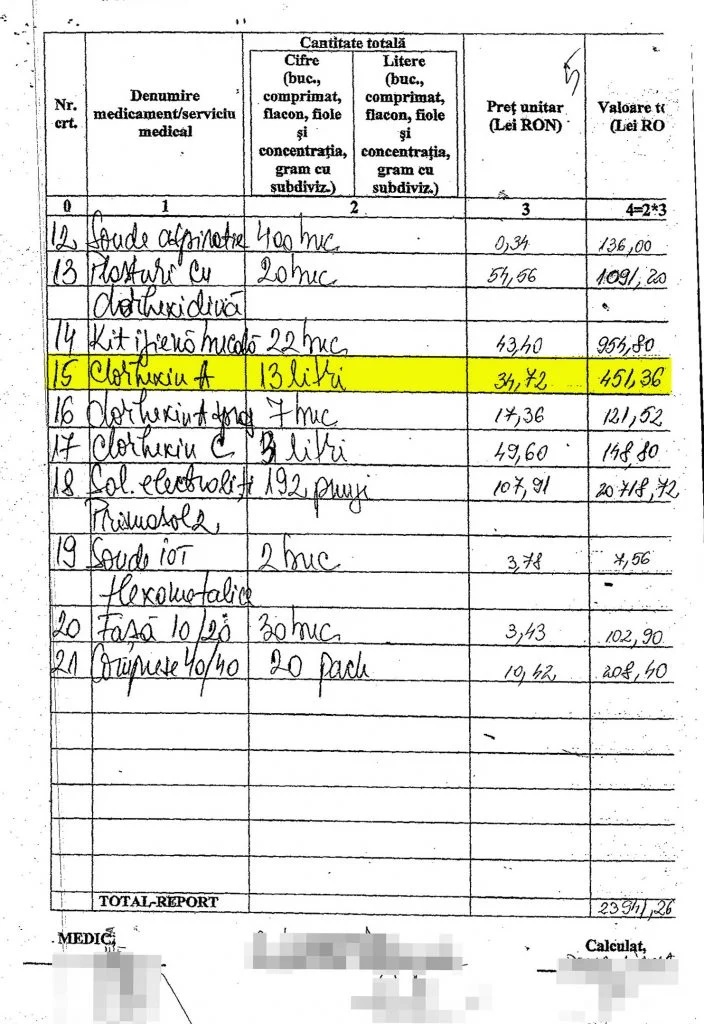 Cantitate totală
Nr. crt.
Denumire medicament/serviciu medical
Cifre (buc., comprimat, flacon, fiole și concentrația, gram cu subdiviz.)
Litere (buc., comprimat, flacon, fiole și concentrația, gram cu subdiviz.)
Preț unitar (Lei RON)
Valoare to (Lei RO
0 1 2 3 4=2*3
12 Sonde aspiratie 400 buc 0,34 136,00
13 Plasturi cu 20 buc 54,56 1091,20
clorhexidină
14 Kit igienă bucală 22 buc 43,40 954,80
15 Clorhexin A 13 litri 34,72 451,36
16 Clorhexin A 7 buc 17,36 121,52
17 Clorhexin C 3 litri 49,60 148,80
18 Sol. electroliți 192 pungi 107,91 20718,72
Prismasol 2
19 Sonde IOT 2 buc 3,78 7,56
flexometalice
20 Fașă 10/20 30 buc 3,43 102,90
21 Comprese 40/40 20 pach 10,42 208,40
TOTAL-REPORT 23941,26
MEDIC,
Calculat,